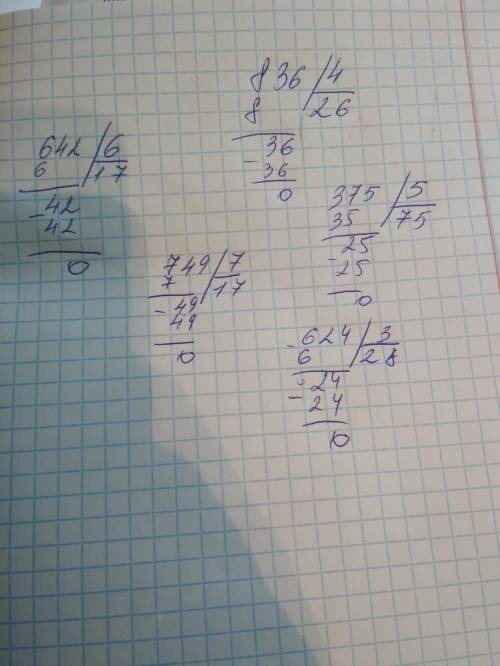 836 / 4
8 26
- 36
36
0
642 / 6
6 17
- 42
42
0
375 / 5
35 75
- 25
25
0
749 / 7
7 17
- 49
49
0
- 624 / 3
6 28
- 24
24
0